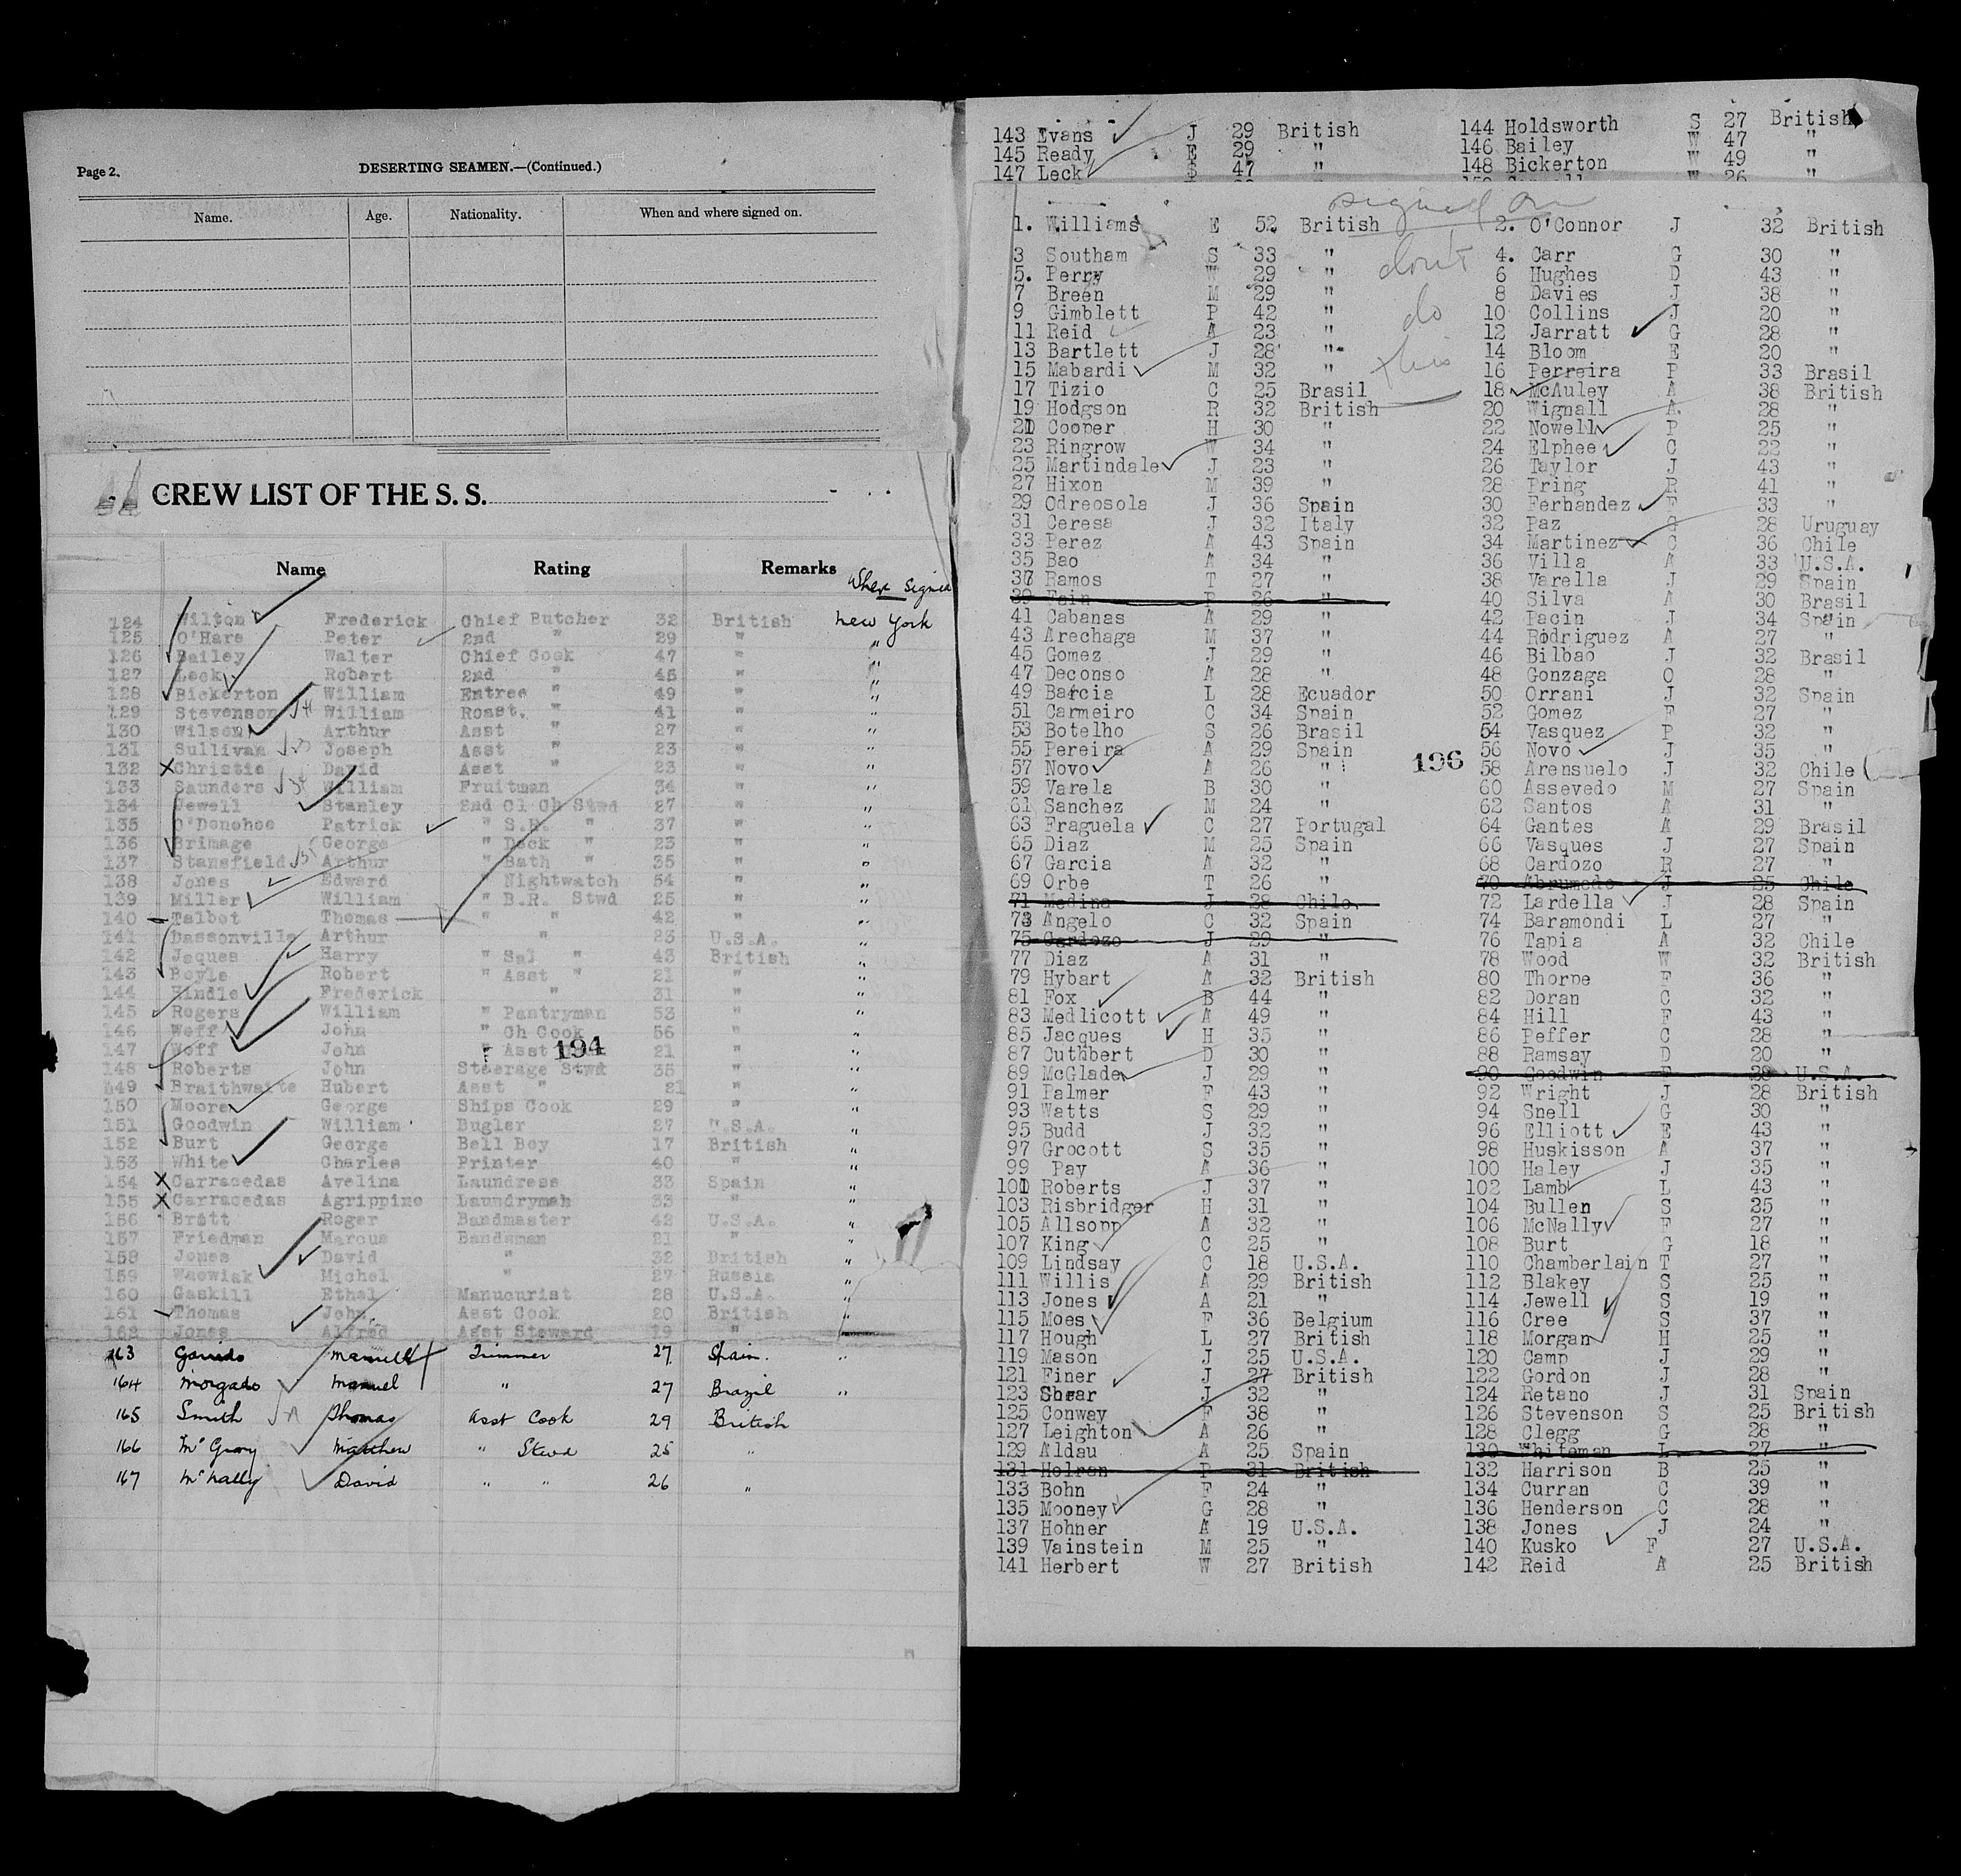 Page 2.
DESERTING SEAMEN.—(Continued.)
Name. Age. Nationality. When and where signed on.
CREW LIST OF THE S. S.
Name Rating Remarks
Where signed
124 Wilton Frederick Chief Butcher 32 British New York
125 O'Hare Peter 2nd " 29 " "
126 Bailey Walter Chief Cook 47 " "
127 Leck Robert 2nd " 45 " "
128 Bickerton William Entree " 49 " "
129 Stevenson William Roast. " 41 " "
130 Wilson Arthur Asst " 27 " "
131 Sullivan Joseph Asst " 23 " "
132 Christie David Asst " 23 " "
133 Saunders William Fruitman 34 " "
134 Jewell Stanley 2nd Cl Ch Stwd 27 " "
135 O'Donohoe Patrick " S.R. " 37 " "
136 Brimage George " Deck " 23 " "
137 Stansfield Arthur " Bath " 35 " "
138 Jones Edward " Nightwatch 54 " "
139 Miller William " B.R. Stwd 25 " "
140 Talbot Thomas " " 42 " "
141 Dassonville Arthur " 23 U.S.A. "
142 Jaques Harry " Sal " 43 British "
143 Boyle Robert " Asst " 21 " "
144 Hindle Frederick " 31 " "
145 Rogers William " Pantryman 53 " "
146 Woff John " Ch Cook 56 " "
147 Woff John " Asst 21 " "
194
148 Roberts John Steerage Stwd 35 " "
149 Braithwaite Hubert Asst " 21 " "
150 Moore George Ships Cook 29 " "
151 Goodwin William Bugler 27 U.S.A. "
152 Burt George Bell Boy 17 British "
153 White Charles Printer 40 " "
154 Carracedas Avelina Laundress 33 Spain "
155 Carracedas Agrippino Laundryman 33 " "
156 Bratt Roger Bandmaster 42 U.S.A. "
157 Friedman Marcus Bandsman 21 " "
158 Jones David " 32 British "
159 Wacwiak Michel " 27 Russia "
160 Gaskill Ethal Manucurist 28 U.S.A. "
161 Thomas John Asst Cook 20 British "
162 Jones Alfred Asst Steward 19 "
163 Garrido Manuel Trimmer 27 Spain. "
164 Morgado Manuel " 27 Brazil "
165 Smith Thomas Asst Cook 29 British
166 McGrory Matthew " Stwd 25 "
167 McNally David " " 26 "
143 Evans J 29 British 144 Holdsworth S 27 British
145 Ready E 29 " 146 Bailey W 47 "
147 Leck S 47 " 148 Bickerton W 49 "
signed on
don't
do
this
1. Williams E 52 British 2. O'Connor J 32 British
3 Southam S 33 " 4. Carr G 30 "
5. Perry W 29 " 6 Hughes D 43 "
7 Breen M 29 " 8 Davies J 38 "
9 Gimblett P 42 " 10 Collins J 20 "
11 Reid A 23 " 12 Jarratt G 28 "
13 Bartlett J 28 " 14 Bloom E 20 "
15 Mabardi M 32 " 16 Perreira P 33 Brasil
17 Tizio C 25 Brasil 18 McAuley A 38 British
19 Hodgson R 32 British 20 Wignall A. 28 "
21 Cooper H 30 " 22 Nowell P 25 "
23 Ringrow W 34 " 24 Elphee C 22 "
25 Martindale J 23 " 26 Taylor J 43 "
27 Hixon M 39 " 28 Pring R 41 "
29 Odreosola J 36 Spain 30 Fernandez F 33 "
31 Ceresa J 32 Italy 32 Paz G 28 Uruguay
33 Perez A 43 Spain 34 Martinez C 36 Chile
35 Bao A 34 " 36 Villa A 33 U.S.A.
37 Ramos T 27 " 38 Varella J 29 Spain
39 Fain P 26 " 40 Silva A 30 Brasil
41 Cabanas A 29 " 42 Pacin J 34 Spain
43 Arechaga M 37 " 44 Rodriguez A 27 "
45 Gomez J 29 " 46 Bilbao J 32 Brasil
47 Deconso A 28 " 48 Gonzaga O 28 "
49 Barcia L 28 Ecuador 50 Orrani J 32 Spain
51 Carmeiro C 34 Spain 52 Gomez F 27 "
53 Botelho S 26 Brasil 54 Vasquez P 32 "
55 Pereira A 29 Spain 56 Novo J 35 "
196
57 Novo A 26 " 58 Arensuelo J 32 Chile
59 Varela B 30 " 60 Assevedo M 27 Spain
61 Sanchez M 24 " 62 Santos A 31 "
63 Fraguela C 27 Portugal 64 Gantes A 29 Brasil
65 Diaz M 25 Spain 66 Vasques J 27 Spain
67 Garcia A 32 " 68 Cardozo R 27 "
69 Orbe T 26 " 70 Abrumedo J 25 Chile
71 Medina J 28 Chile. 72 Lardella J 28 Spain
73 Angelo C 32 Spain 74 Baramondi L 27 "
75 Cardozo J 29 " 76 Tapia A 32 Chile
77 Diaz A 31 " 78 Wood W 32 British
79 Hybart A 32 British 80 Thorpe F 36 "
81 Fox B 44 " 82 Doran C 32 "
83 Medlicott A 49 " 84 Hill F 43 "
85 Jacques H 35 " 86 Peffer C 28 "
87 Cuthbert D 30 " 88 Ramsay D 20 "
89 McGlade J 29 " 90 Goodwin F 28 U.S.A.
91 Palmer F 43 " 92 Wright J 28 British
93 Watts S 29 " 94 Snell G 30 "
95 Budd J 32 " 96 Elliott E 43 "
97 Grocott S 35 " 98 Huskisson A 37 "
99 Pay A 36 " 100 Haley J 35 "
101 Roberts J 37 " 102 Lamb L 43 "
103 Risbridger H 31 " 104 Bullen S 25 "
105 Allsopp A 32 " 106 McNally F 27 "
107 King C 25 " 108 Burt G 18 "
109 Lindsay C 18 U.S.A. 110 Chamberlain T 27 "
111 Willis A 29 British 112 Blakey S 25 "
113 Jones A 21 " 114 Jewell S 19 "
115 Moes F 36 Belgium 116 Cree S 37 "
117 Hough L 27 British 118 Morgan H 25 "
119 Mason J 25 U.S.A. 120 Camp J 29 "
121 Finer J 27 British 122 Gordon J 28 "
123 Shear J 32 " 124 Retano J 31 Spain
125 Conway F 38 " 126 Stevenson S 25 British
127 Leighton A 26 " 128 Clegg G 28 "
129 Aldau A 25 Spain 130 Whiteman L 27 "
131 Holron P 31 British 132 Harrison B 25 "
133 Bohn F 24 " 134 Curran C 39 "
135 Mooney G 28 " 136 Henderson C 28 "
137 Hohner A 19 U.S.A. 138 Jones J 24 "
139 Vainstein M 25 " 140 Kusko F 27 U.S.A.
141 Herbert W 27 British 142 Reid A 25 British